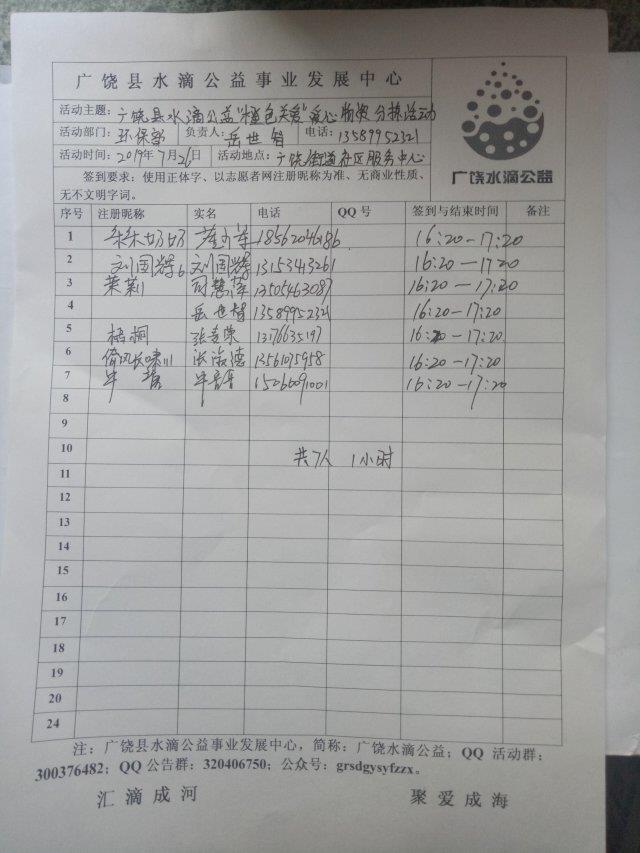 广饶县水滴公益事业发展中心
活动主题：广饶县水滴公益"橙色关爱"爱心物资分拣活动
活动部门：环保部 负责人：岳世智 电话：13589952321
活动时间：2019年7月26日 活动地点：广饶街道社区服务中心
签到要求：使用正体字、以志愿者网注册昵称为准、无商业性质、
无不文明字词。
广饶水滴公益
序号 注册昵称 实名 电话 QQ号 签到与结束时间 备注
1 朵朵奶奶 18562046186 16:20-17:20
2 刘国辉6 刘国辉 13153413261 16:20-17:20
3 茉莉1 13505463087 16:20-17:20
4 岳世智 13589952321 16:20-17:20
5 梧桐 13176635197 16:20-17:20
6 倚风长啸川 13561095958 16:20-17:20
7 15066091001 16:20-17:20
8
9
10 共7人 1小时
11
12
13
14
15
16
17
18
19
20
24
注：广饶县水滴公益事业发展中心，简称：广饶水滴公益；QQ 活动群：
300376482；QQ 公告群：320406750；公众号：grsdgysyfzzx。
汇滴成河 聚爱成海